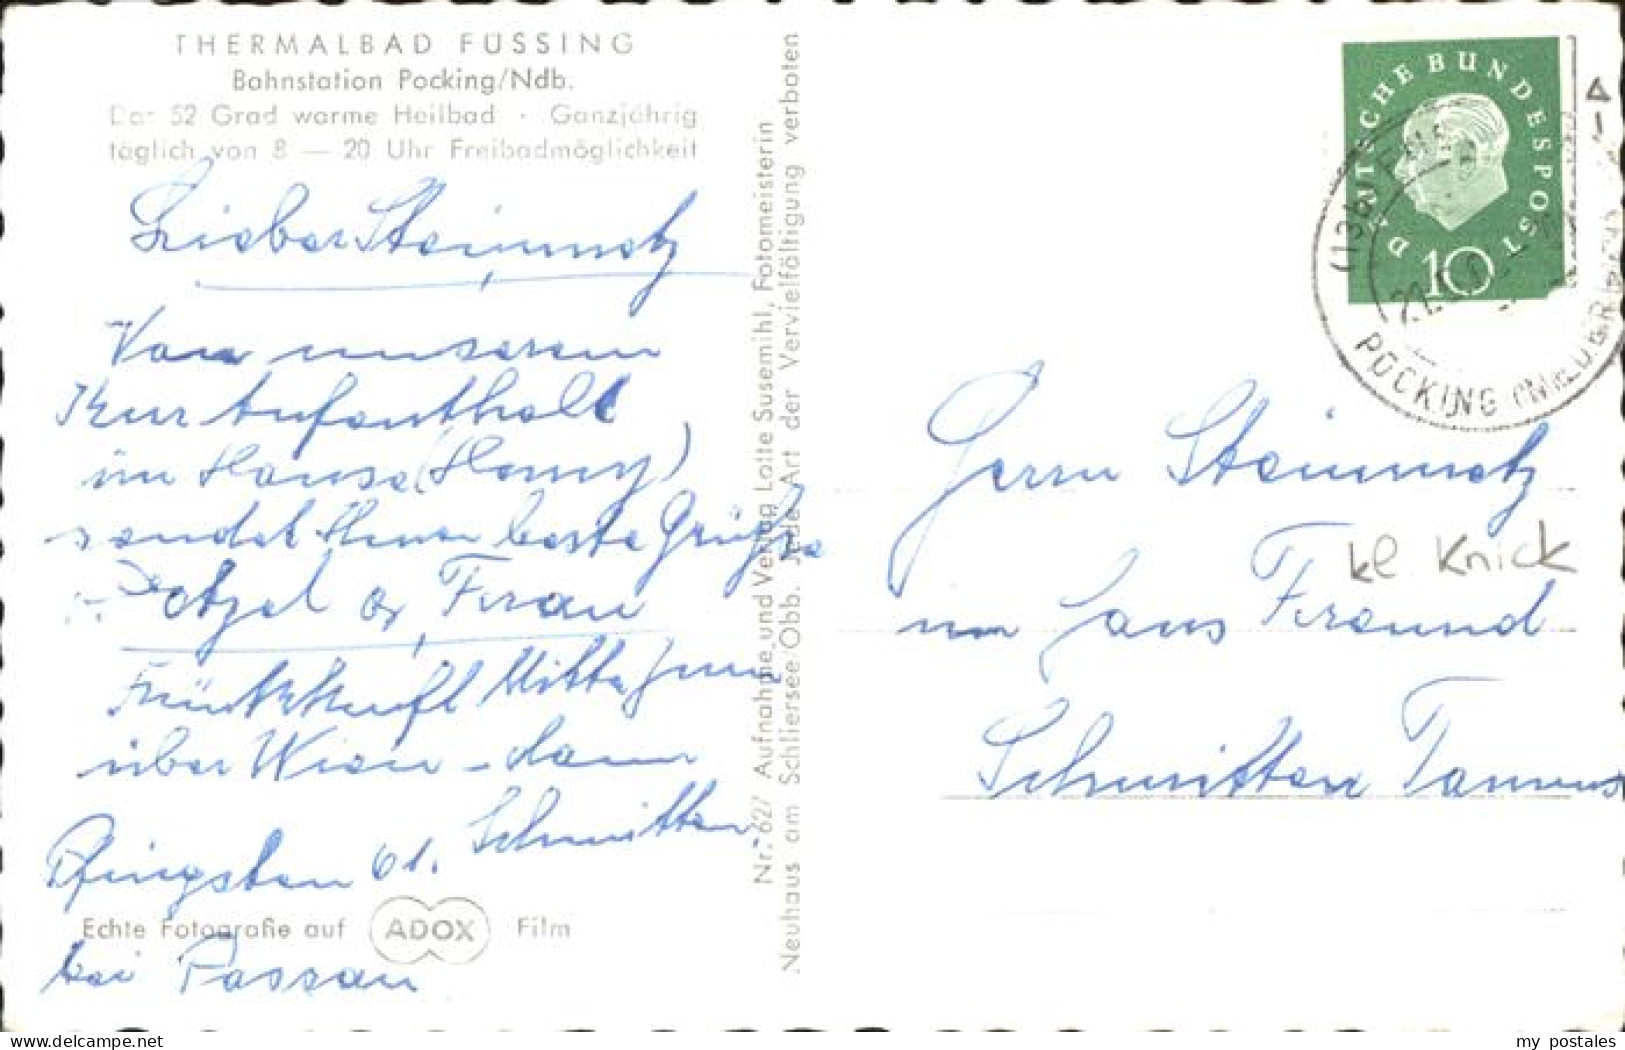 THERMALBAD FÜSSING
Bahnstation Pocking/Ndb.
Das 52 Grad warme Heilbad · Ganzjährig
täglich von 8 — 20 Uhr Freibadmöglichkeit
Lieber Steinmetz
Von unserem
Kur Aufenthalt
im Hause (Hamy)
sendet Ihnen beste Grüße
Petzel & Frau
Rückkunft Mitte Juni
über Wien - dann
Schmitten
Pfingsten 61.
Echte Fotografie auf ADOX Film
bei Passau
Nr. 627 Aufnahme und Verlag Lotte Susemihl, Fotomeisterin
Neuhaus am Schliersee/Obb. Jede Art der Vervielfältigung verboten
DEUTSCHE BUNDESPOST
10
(13b)
POCKING (NIEDERBAY)
Herrn Steinmetz
im Haus Freund
kl Knick
Schmitten Taunus
my_postales